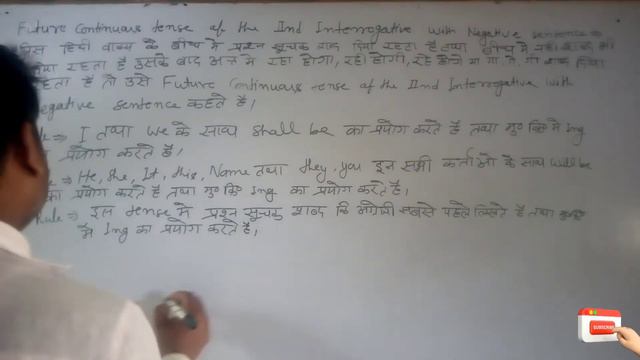 Future Continuous tense of the IInd Interrogative With Negative sentence
जिस हिन्दी वाक्य के बीच मे प्रश्न सूचक शब्द दिया रहता है तथा बीच मे नही शब्द भी
रहता है उसके बाद अन्त मे रहा होगा, रही होगी, रहे होगे या गा, गे, गी शब्द दिया
रहता है तो उसे Future Continuous tense of the IInd Interrogative with
Negative sentence कहते है।
Rule ⇒ I तथा we के साथ shall be का प्रयोग करते है तथा मु० क्रि० मे ing
प्रयोग करते है।
⇒ He, she, It, this, Name तथा they, you इन सभी कर्ताओ के साथ will be
का प्रयोग करते है तथा मु० क्रि० ing का प्रयोग करते है।
Rule ⇒ इस tense मे प्रश्न सूचक शब्द कि अंग्रेजी सबसे पहले लिखते है तथा
मे Ing का प्रयोग करते है।
SUBSCRIBE